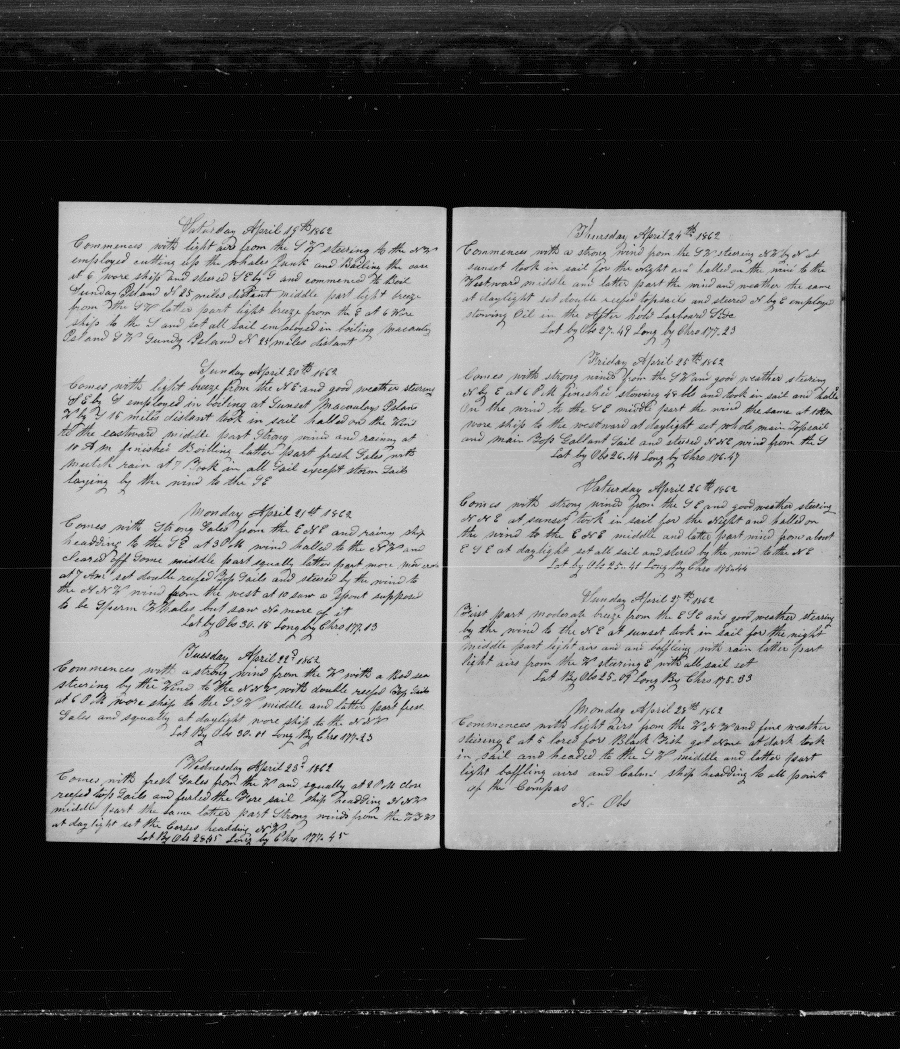 Saturday April 19th 1862
Commences with light airs from the S W steering to the N W
employed cutting up the Whales Junk and Boiling the case
at 6 wore ship and steered S E by S and commenced to Boil
Sunday Island N 25 miles distant middle part light breeze
from the S W latter part light breeze from the E at 6 Wore
ship to the S and set all sail employed in boiling Macauley
Island S W Sundy Island N 25 miles distant
Sunday April 20th 1862
Comes with light breeze from the N E and good weather steering
S E by S employed in boiling at Sunset Macauleys Island
W by S 15 miles distant took in sail halled on the Wind
to the eastward middle part Strong wind and rainy at
10 A m finished Boiling latter part fresh Gales with
mutch rain at 7 Took in all Sail except storm Sails
laying by the wind to the S E
Monday April 21st 1862
Comes with Strong Gales from the E N E and rainy ship
headding to the S E at 3 P M wind halled to the N W and
cleared off Some middle part squally latter part more moderate
at 7 Am set double reefed Top Sails and steered by the wind to
the N N W wind from the west at 10 saw a Spout supposed
to be Sperm Whales but saw No more of it
Lat by Obs 30.15 Long by Chro 177.13
Tuesday April 22d 1862
Commences with a strong wind from the W with a Bad sea
steering by the Wind to the N N W with double reefed Top Sails
at 6 P M wore ship to the S S W middle and latter part fresh
Gales and squally at daylight wore ship to the N N W
Lat By Obs 30.01 Long By Chro 177.23
Wednesday April 23d 1862
Comes with fresh Gales from the W and squally at 2 P M close
reefed top Sails and furled the Fore sail ship headding N N W
middle part the same latter part Strong winds from the W S W
at daylight set the Corses headding N W
Lat By Obs 28.45 Long by Chro 177.45
Thursday April 24th 1862
Commences with a strong wind from the S W steering N W by N at
sunset took in sail for the Night and halled on the wind to the
Westward middle and latter part the wind and weather the same
at daylight set double reefed topsails and steered N by E employed
stowing Oil in the After hold Larboard Side
Lat by Obs 27.49 Long by Chro 177.23
Friday April 25th 1862
Comes with strong winds from the S W and good weather steering
N by E at 6 P M finished stowing 45 bbl and took in sail and halled
On the wind to the S E middle part the wind the same at
wore ship to the westward at daylight set whole main Topsail
and main Top Gallant Sail and steered N N E wind from the S
Lat by Obs 26.44 Long by Chro 176.47
Saturday April 26th 1862
Comes with strong winds from the S E and good weather steering
N N E at sunset took in sail for the Night and halled on
the wind to the E N E middle and latter part wind from about
E S E at daylight set all sail and steered by the wind to the N E
Lat by Obs 25.41 Long By Chro
Sunday April 27th 1862
First part moderate breeze from the E S E and good weather steering
by the wind to the N E at sunset took in sail for the night
middle part light airs and baffling with rain latter part
light airs from the W steering E with all sail set
Lat By Obs 25.09 Long By Chro 175.33
Monday April 28th 1862
Commences with light airs from the W N W and fine weather
steering E at 5 lored for Black Fish got None at dark took
in sail and headed to the S W middle and latter part
light baffling airs and Calm ship headding to all points
of the Compas
No Obs